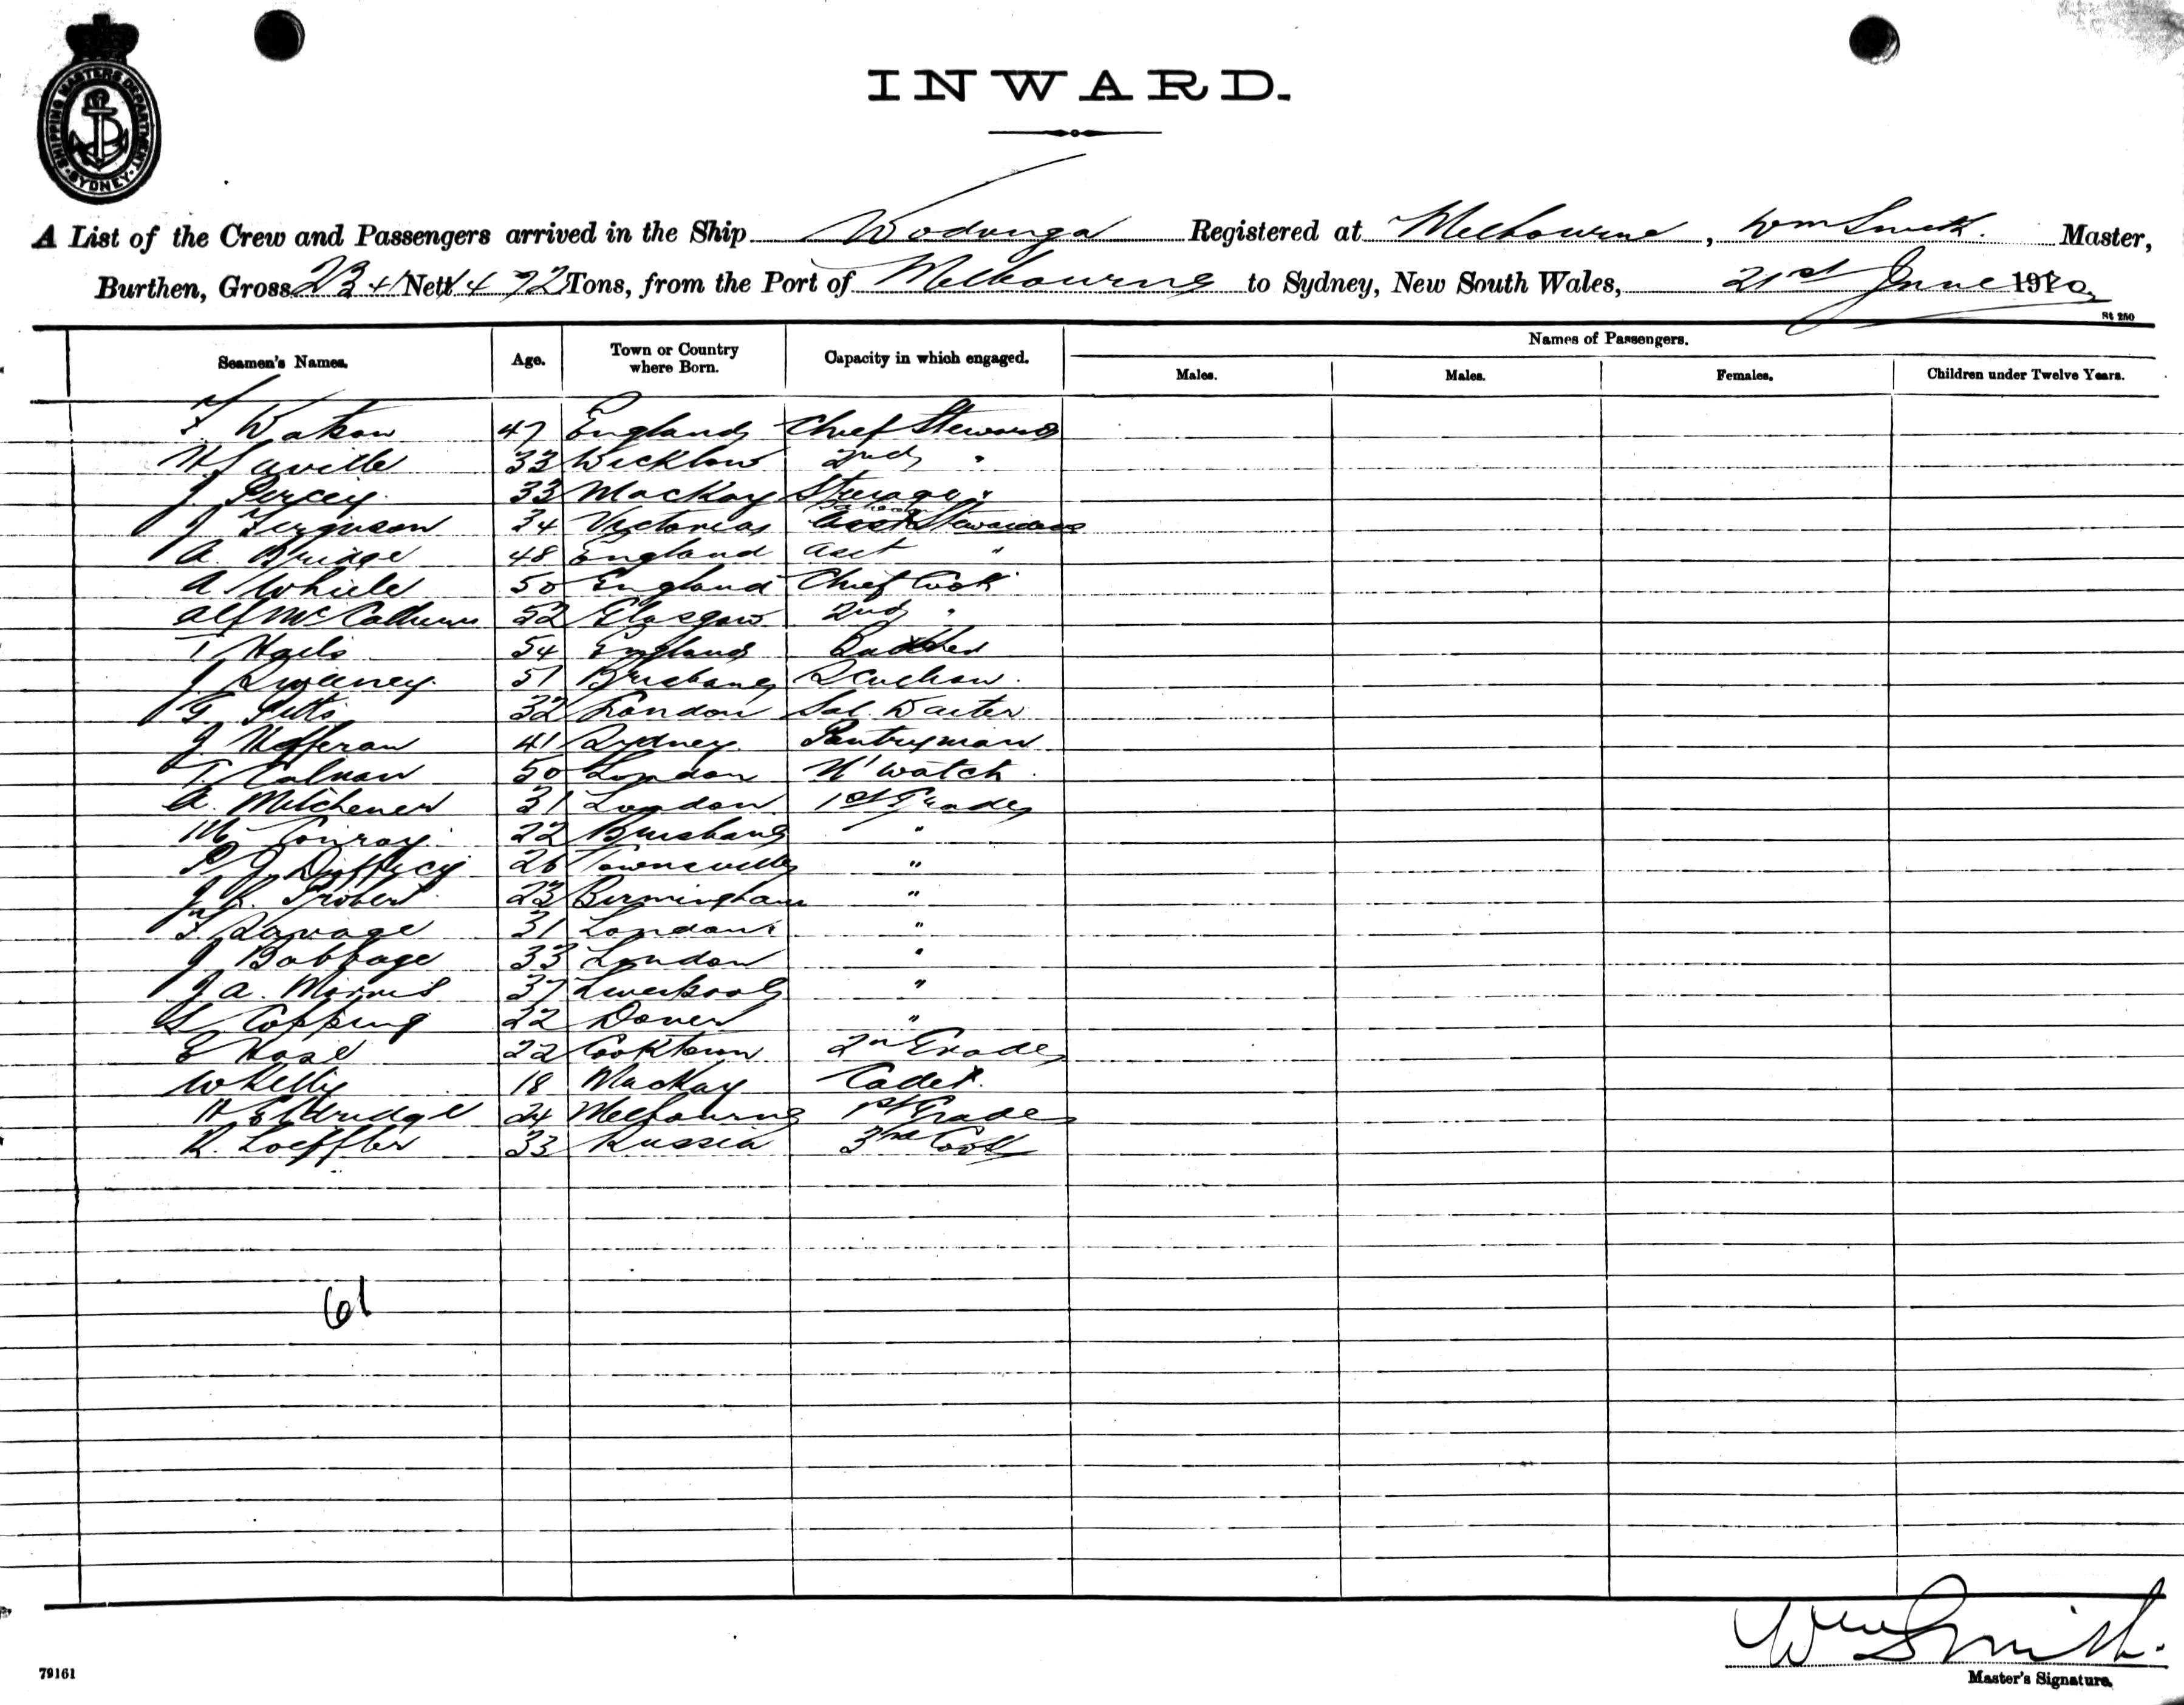 SHIPPING MASTERS DEPARTMENT SYDNEY
INWARD.
A List of the Crew and Passengers arrived in the Ship Wodonga Registered at Melbourne, Wm Smith. Master,
Burthen, Gross 2341 Nett 1472 Tons, from the Port of Melbourne to Sydney, New South Wales, 21st June 1920
St 250
Seamen's Names. Age. Town or Country where Born. Capacity in which engaged. Names of Passengers.
Males. Males. Females. Children under Twelve Years.
F. Watson 47 England Chief Steward
H Saville 33 Wicklow 2nd "
J. Percey 33 Mackay Steerage "
J Ferguson 34 Victoria Stewardess
A. Bridge 48 England Asst "
A. White 50 England Chief Cook
Alf Mc 52 Glasgow 2nd "
T 54 England Butcher
J. Sweeney 51 Brisbane Scullion.
G. Pitts 32 London Sal. Waiter
J. Hefferan 41 Sydney Pantryman
T. Colman 50 London N' Watch
A. Mitchener 31 London 1st Grade
M. Conroy 22 Brisbane "
P. J. 26 Townsville "
J. Probert 23 Birmingham "
F. Savage 31 London "
J Babbage 33 London "
J A. Morris 37 Liverpool "
L. Copping 22 Dover "
E Hose 22 Cooktown 2n Grade
W Kelly 18 Mackay Cadet.
H Eldridge 24 Melbourne 1st Grade
K. Loeffler 33 Russia 3rd Cook
61
Wm Smith.
79161 Master's Signature.